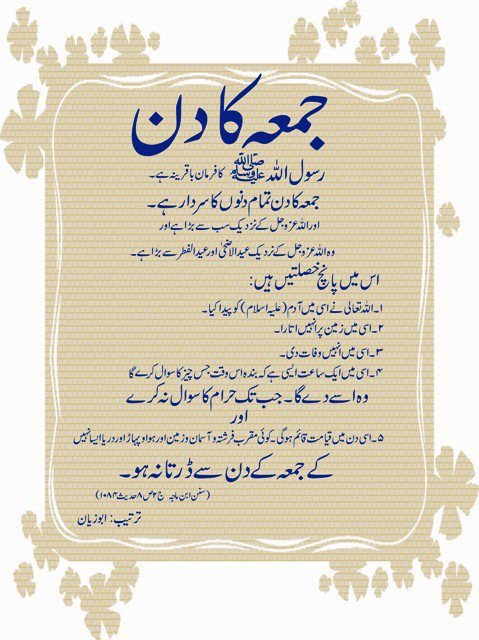 جمعہ کا دن
رسول اللہ ﷺ کا فرمان باقرینہ ہے۔
جمعہ کا دن تمام دنوں کا سردار ہے۔
اور اللہ عزوجل کے نزدیک سب سے بڑا ہے اور
وہ اللہ عزوجل کے نزدیک عیدالاضحیٰ اور عیدالفطر سے بڑا ہے۔
اس میں پانچ خصلتیں ہیں:
۱۔ اللہ تعالیٰ نے اسی میں آدم (علیہ اسلام) کو پیدا کیا۔
۲۔ اسی میں زمین پر انہیں اتارا۔
۳۔ اسی میں انہیں وفات دی۔
۴۔ اسی میں ایک ساعت ایسی ہے کہ بندہ اس وقت جس چیز کا سوال کرے گا
وہ اسے دے گا۔ جب تک حرام کا سوال نہ کرے
اور
۵۔ اسی دن میں قیامت قائم ہوگی۔ کوئی مقرب فرشتہ و آسمان و زمین اور ہوا و پہاڑ اور دریا ایسا نہیں
کے جمعہ کے دن سے ڈرتا نہ ہو۔
(سنن ابن ماجہ ج۲ ص۸ حدیث ۱۰۸۴)
ترتیب: ابوزیان